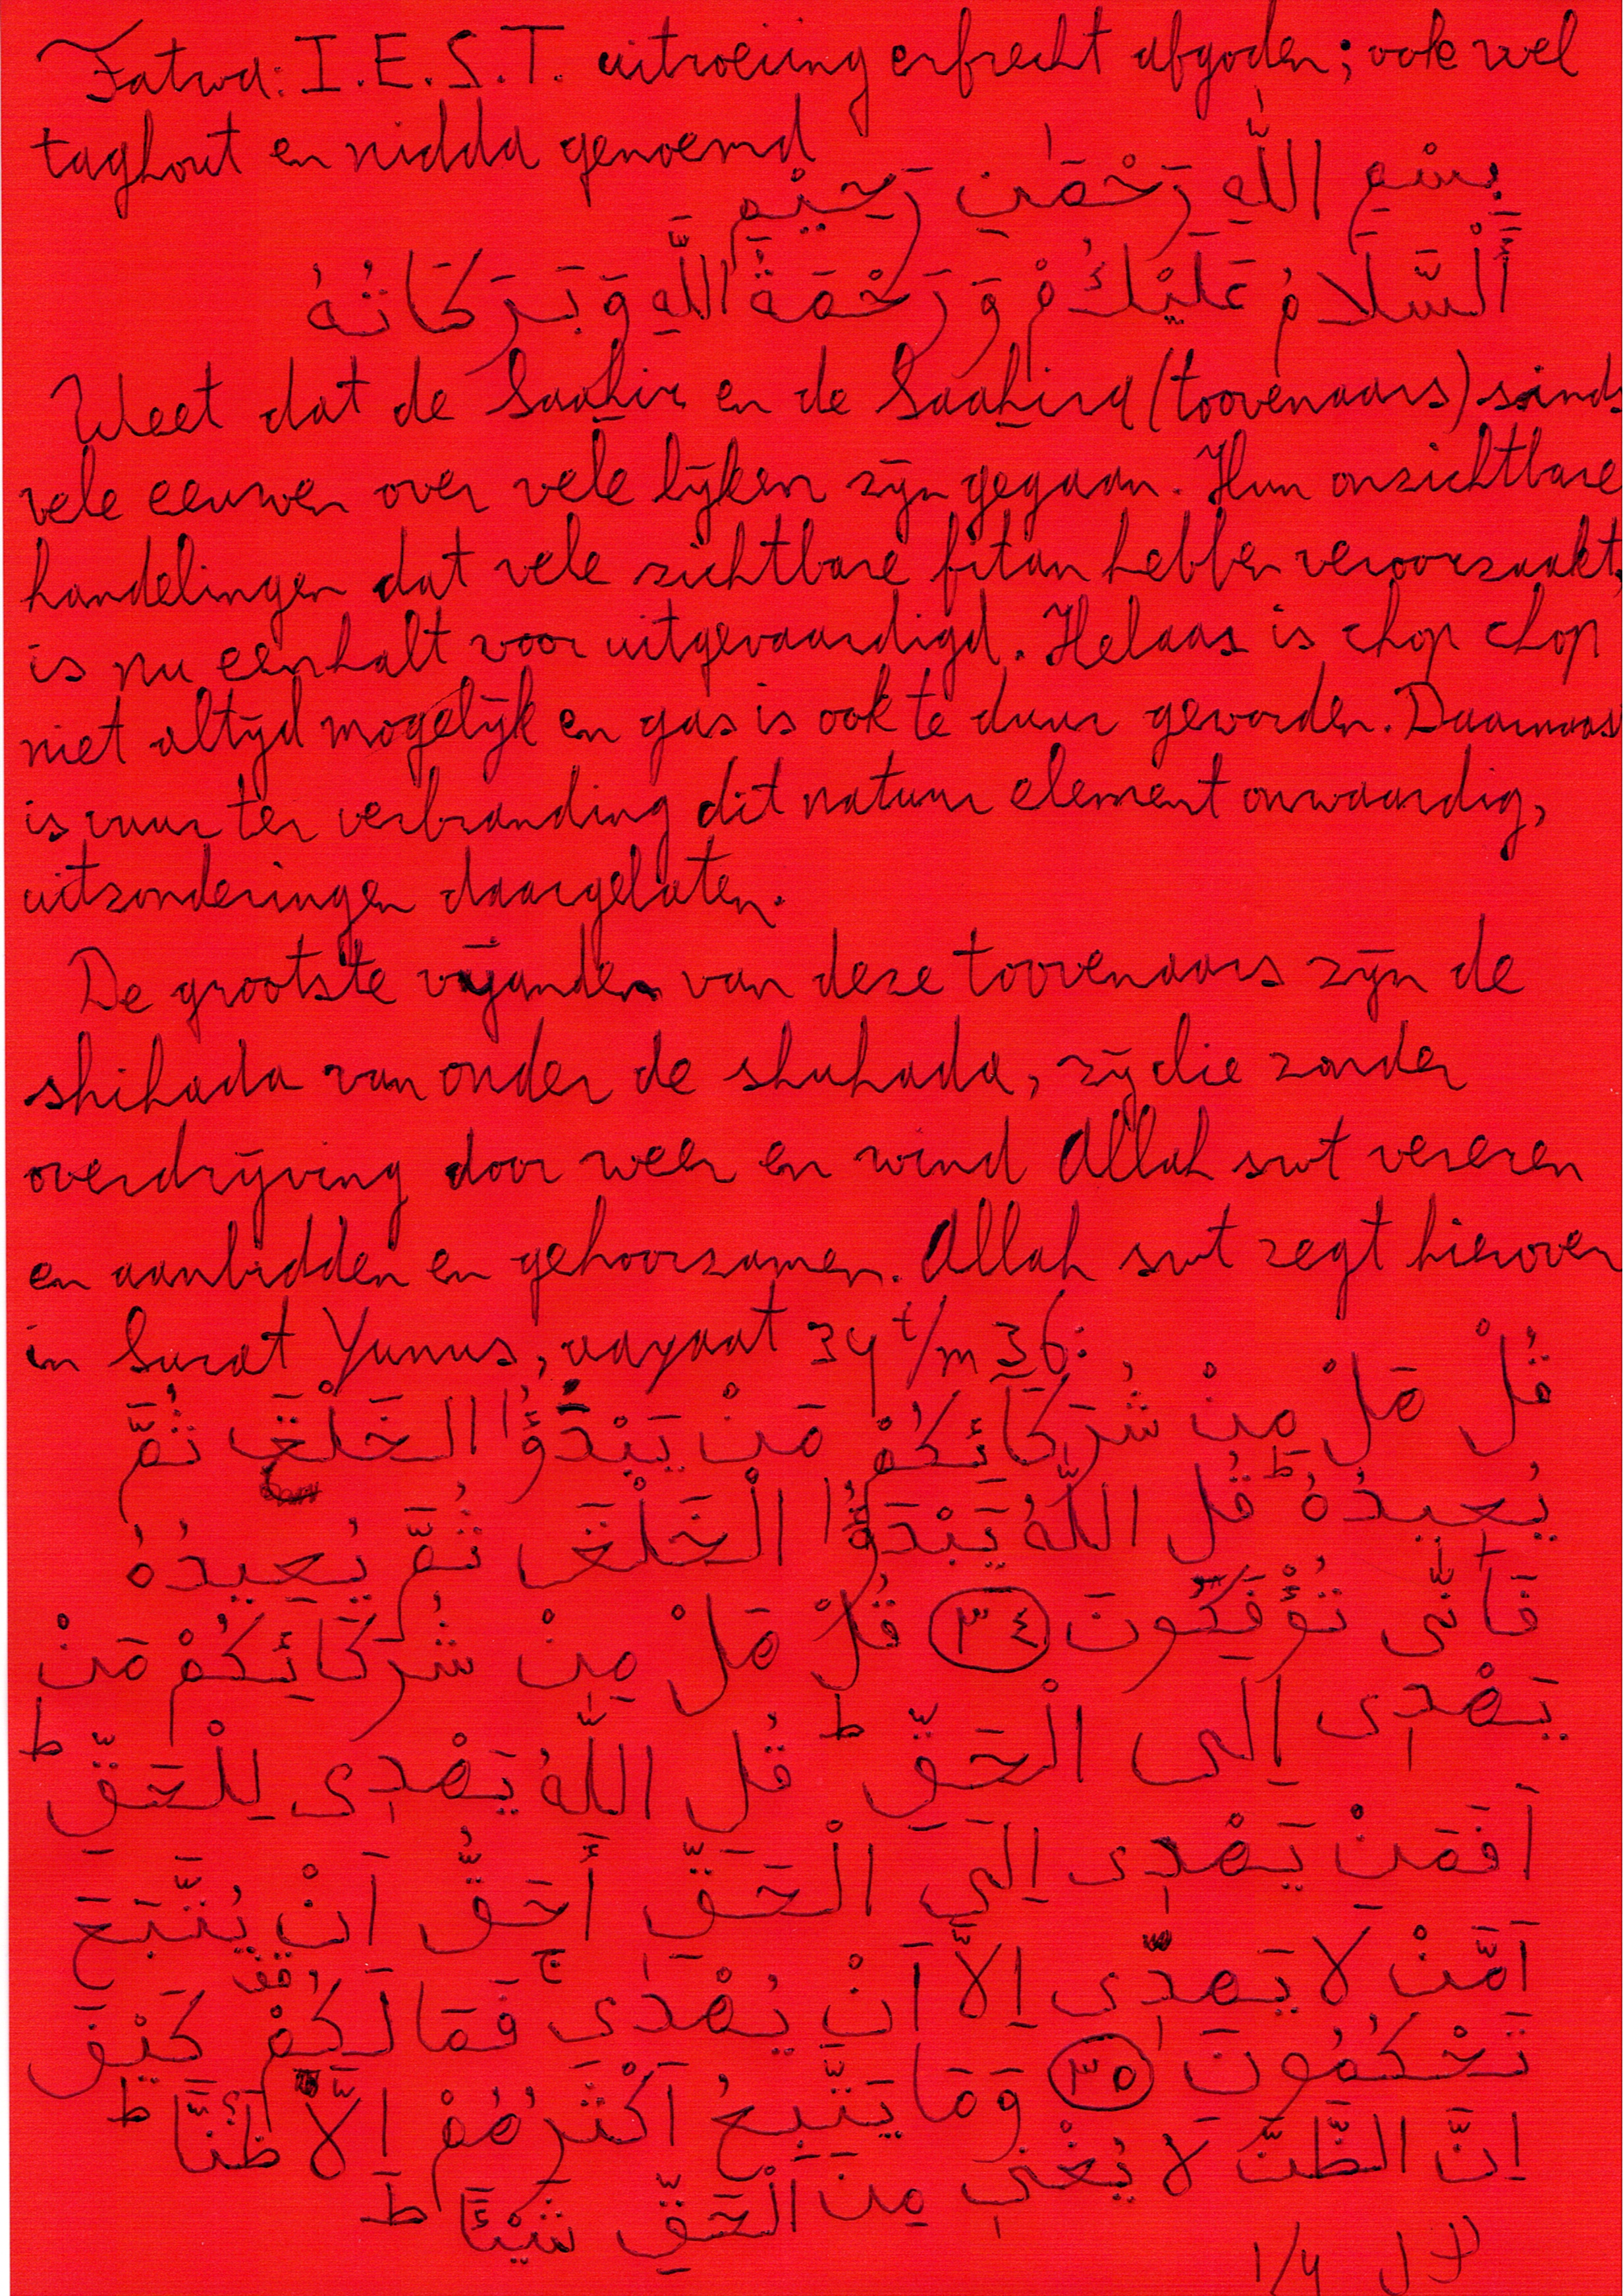 Fatwa: I.E.S.T. uitroeiing erfrecht afgoden; ook wel
taghout en nidda genoemd
بِسْمِ اللّٰهِ رَحْمٰنِ رَحِيْمِ
أَلْسَّلَامُ عَلَيْكُمْ وَرَحْمَةُ اللّٰهِ وَبَرَكَاتُهُ
Weet dat de Saahir en de Saahira (toovenaars) sind
vele eeuwen over vele lijken zijn gegaan. Hun onzichtbare
handelingen dat vele zichtbare fitan hebben veroorzaakt,
is nu een halt voor uitgevaardigd. Helaas is chop chop
niet altijd mogelijk en gas is ook te duur geworden. Daarnaast
is vuur ter verbranding dit natuur element onwaardig,
uitzonderingen daargelaten.
De grootste vijanden van deze toovenaars zijn de
shihada van onder de shuhada, zij die zonder
overdrijving door weer en wind Allah swt vereren
en aanbidden en gehoorzamen. Allah swt zegt hierover
in Surat Yunus, aayaat 34 t/m 36:
قُلْ هَلْ مِنْ شُرَكَآئِكُمْ مَنْ يَبْدَؤُا الْخَلْقَ ثُمَّ
يُعِيدُهُ ط قُلِ اللّٰهُ يَبْدَؤُا الْخَلْقَ ثُمَّ يُعِيدُهُ
فَأَنّٰى تُؤْفَكُونَ ٣٤ قُلْ هَلْ مِنْ شُرَكَائِكُمْ مَنْ
يَهْدِى إِلَى الْحَقِّ ط قُلِ اللّٰهُ يَهْدِى لِلْحَقِّ ط
اَفَمَنْ يَهْدِى اِلَى الْحَقِّ أَحَقُّ اَنْ يُتَّبَعَ
اَمَّنْ لَا يَهِدِّى اِلَّا اَنْ يُهْدٰى ج فَمَا لَكُمْ قف كَيْفَ
تَحْكُمُونَ ٣٥ وَمَا يَتَّبِعُ اَكْثَرُهُمْ اِلَّا ظَنًّا ط
اِنَّ الظَّنَّ لَا يُغْنِى مِنَ الْحَقِّ شَيْئًا ط
1/4